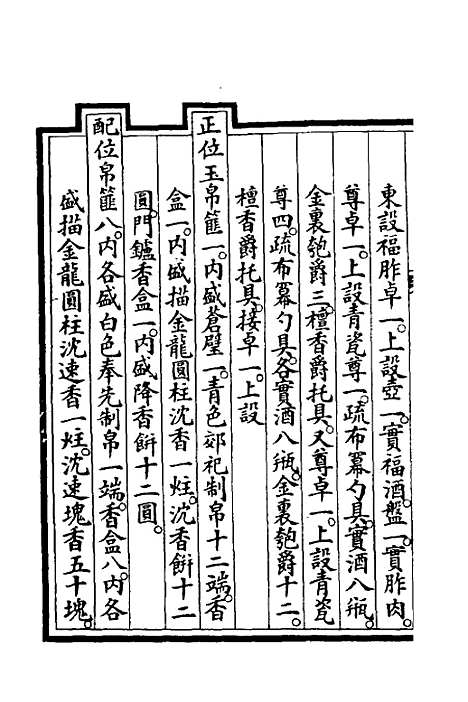 東設福胙卓一。上設壺一。實福酒。盤一。實胙肉。
尊卓一。上設青瓷尊一。疏布冪勺具。實酒八瓶。
金裏匏爵三。檀香爵托具。又尊卓一。上設青瓷
尊四。疏布冪勺具。各實酒八瓶。金裏匏爵十二。
檀香爵托具。接卓一。上設
正位玉帛篚一。内盛蒼璧一。青色郊祀制帛十二端。香
盒一。内盛描金龍圓柱沈香一炷。沈香餅十二
圓。門鑪香盒一。内盛降香餅十二圓。
配位帛篚八。内各盛白色奉先制帛一端。香盒八。内各
盛描金龍圓柱沈速香一炷。沈速塊香五十塊。